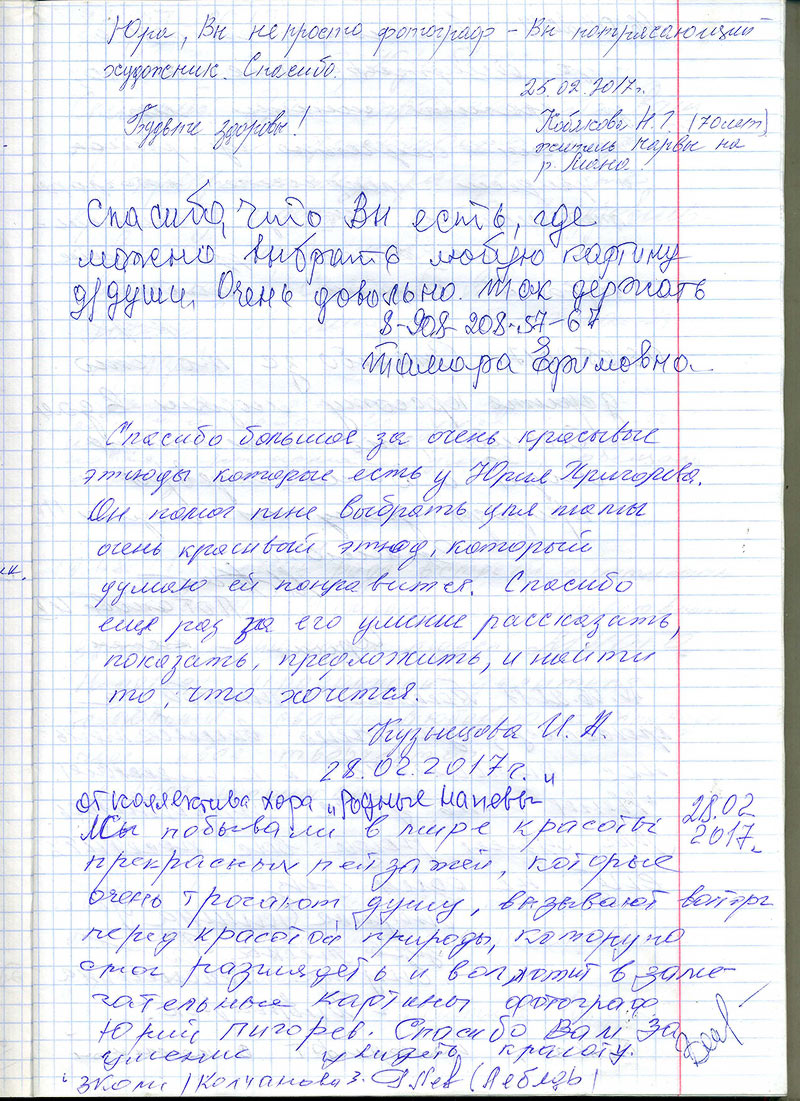 Юра, Вы не просто фотограф – Вы потрясающий
художник. Спасибо.
25.02.2017г.
Будьте здоровы!
Кобякова Н.Г. (70 лет)
житель Нарвы на
р. Мана.
Спасибо, что Вы есть, где
можно выбрать любую картину
д/души. Очень довольно. Так держать
8-908-208-57-67
Тамара Ефимовна.
Спасибо большое за очень красывые
этюды которые есть у Юрия Пригорева.
Он помог мне выбрать для мамы
очень красивый этюд, который
думаю ей понравится. Спасибо
еще раз за его умение рассказать,
показать, предложить, и найти
то, что хочется.
Кузнецова И. А.
28.02.2017г.
От коллектива хора „Родные напевы"
28.02
2017г.
Мы побывали в мире красоты
прекрасных пейзажей, которые
очень трогают душу, вызывают восторг
перед красотой природы, которую
смог разглядеть и воплотит в заме-
чательные картины фотограф
Юрий Пигорев. Спасибо Вам за
умение увидеть красоту.
(Колчанова З. (Лебедь)